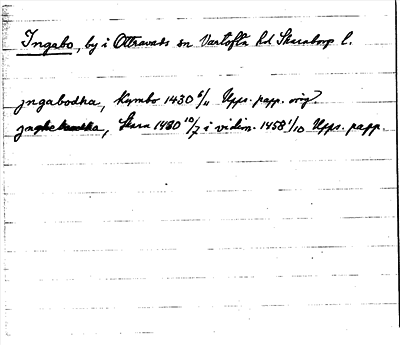 Ingabo, by i Ottravads sn Vartofta hd Skaraborgs l.
jngabodha, Kymbo 1430 6/11 Upps. papp. orig?
Skara 1480 10/7 i vidim. 1458 1/10 Upps. papp.